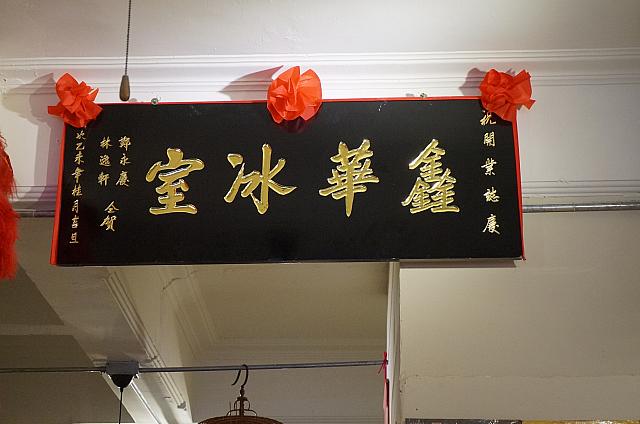 祝開業誌慶
鑫華冰室
鄭永慶
林逸軒 仝賀
歲乙未年桂月吉旦